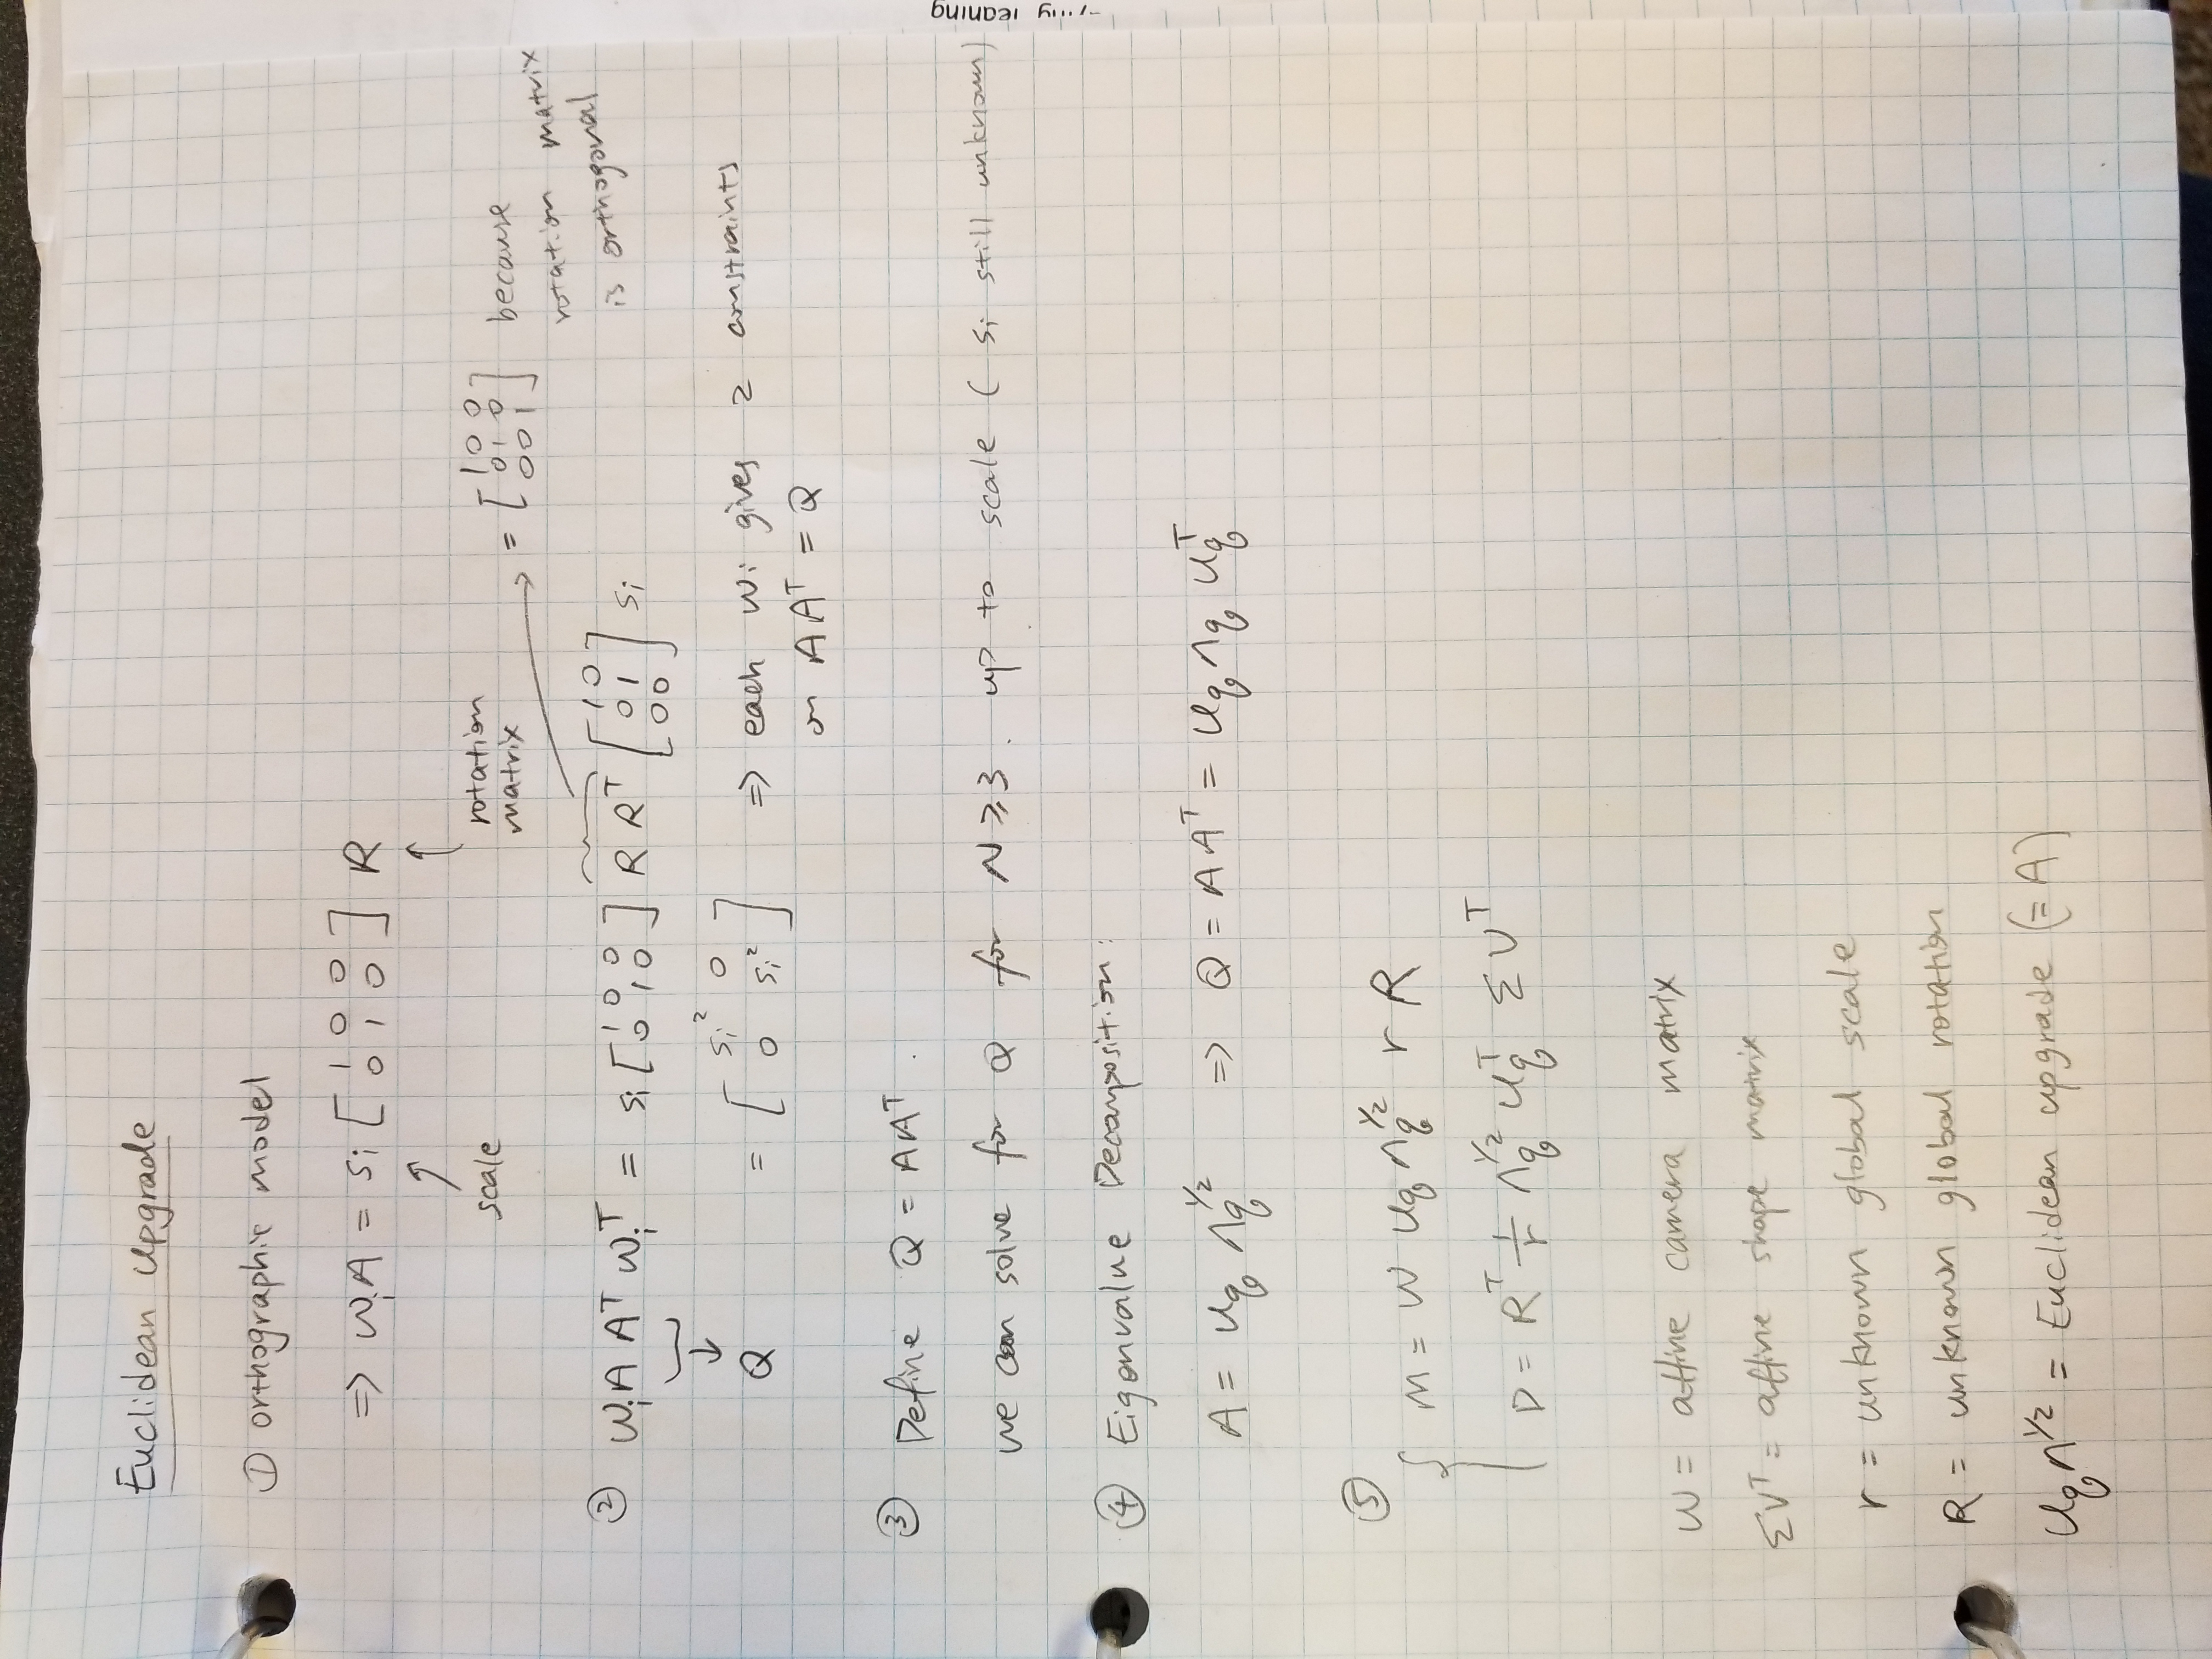 Euclidean Upgrade
① orthographic model
⇒ WᵢA = sᵢ [1 0 0; 0 1 0] R
scale
rotation
matrix
= [1 0 0; 0 1 0; 0 0 1] because
rotation matrix
is orthogonal
② WᵢA Aᵀ Wᵢᵀ = sᵢ [1 0 0; 0 1 0] R Rᵀ [1 0; 0 1; 0 0] sᵢ
Q = [sᵢ² 0; 0 sᵢ²] ⇒ each Wᵢ gives 2 constraints
on AAᵀ = Q
③ Define Q = AAᵀ.
we can solve for Q for N ≥ 3. up to scale (sᵢ still unknown)
④ Eigenvalue Decomposition:
A = U_q Λ_q^{1/2} ⇒ Q = AAᵀ = U_q Λ_q U_qᵀ
⑤
M = W U_q Λ_q^{1/2} r R
D = Rᵀ 1/r Λ_q^{1/2} U_qᵀ Σ Vᵀ
W = affine camera matrix
ΣVᵀ = affine shape matrix
r = unknown global scale
R = unknown global rotation
U_q Λ^{1/2} = Euclidean upgrade (= A)